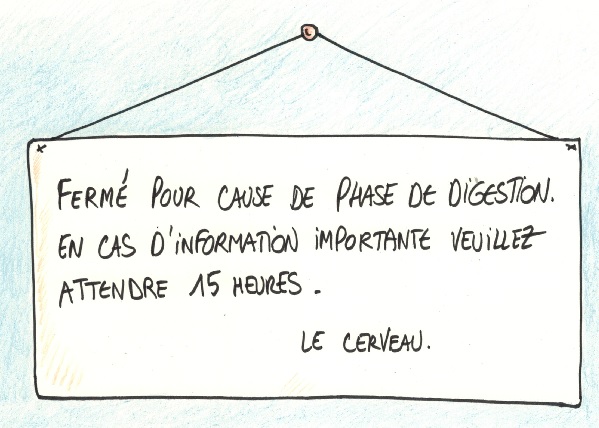 FERMÉ POUR CAUSE DE PHASE DE DIGESTION.
EN CAS D'INFORMATION IMPORTANTE VEUILLEZ
ATTENDRE 15 HEURES.
LE CERVEAU.